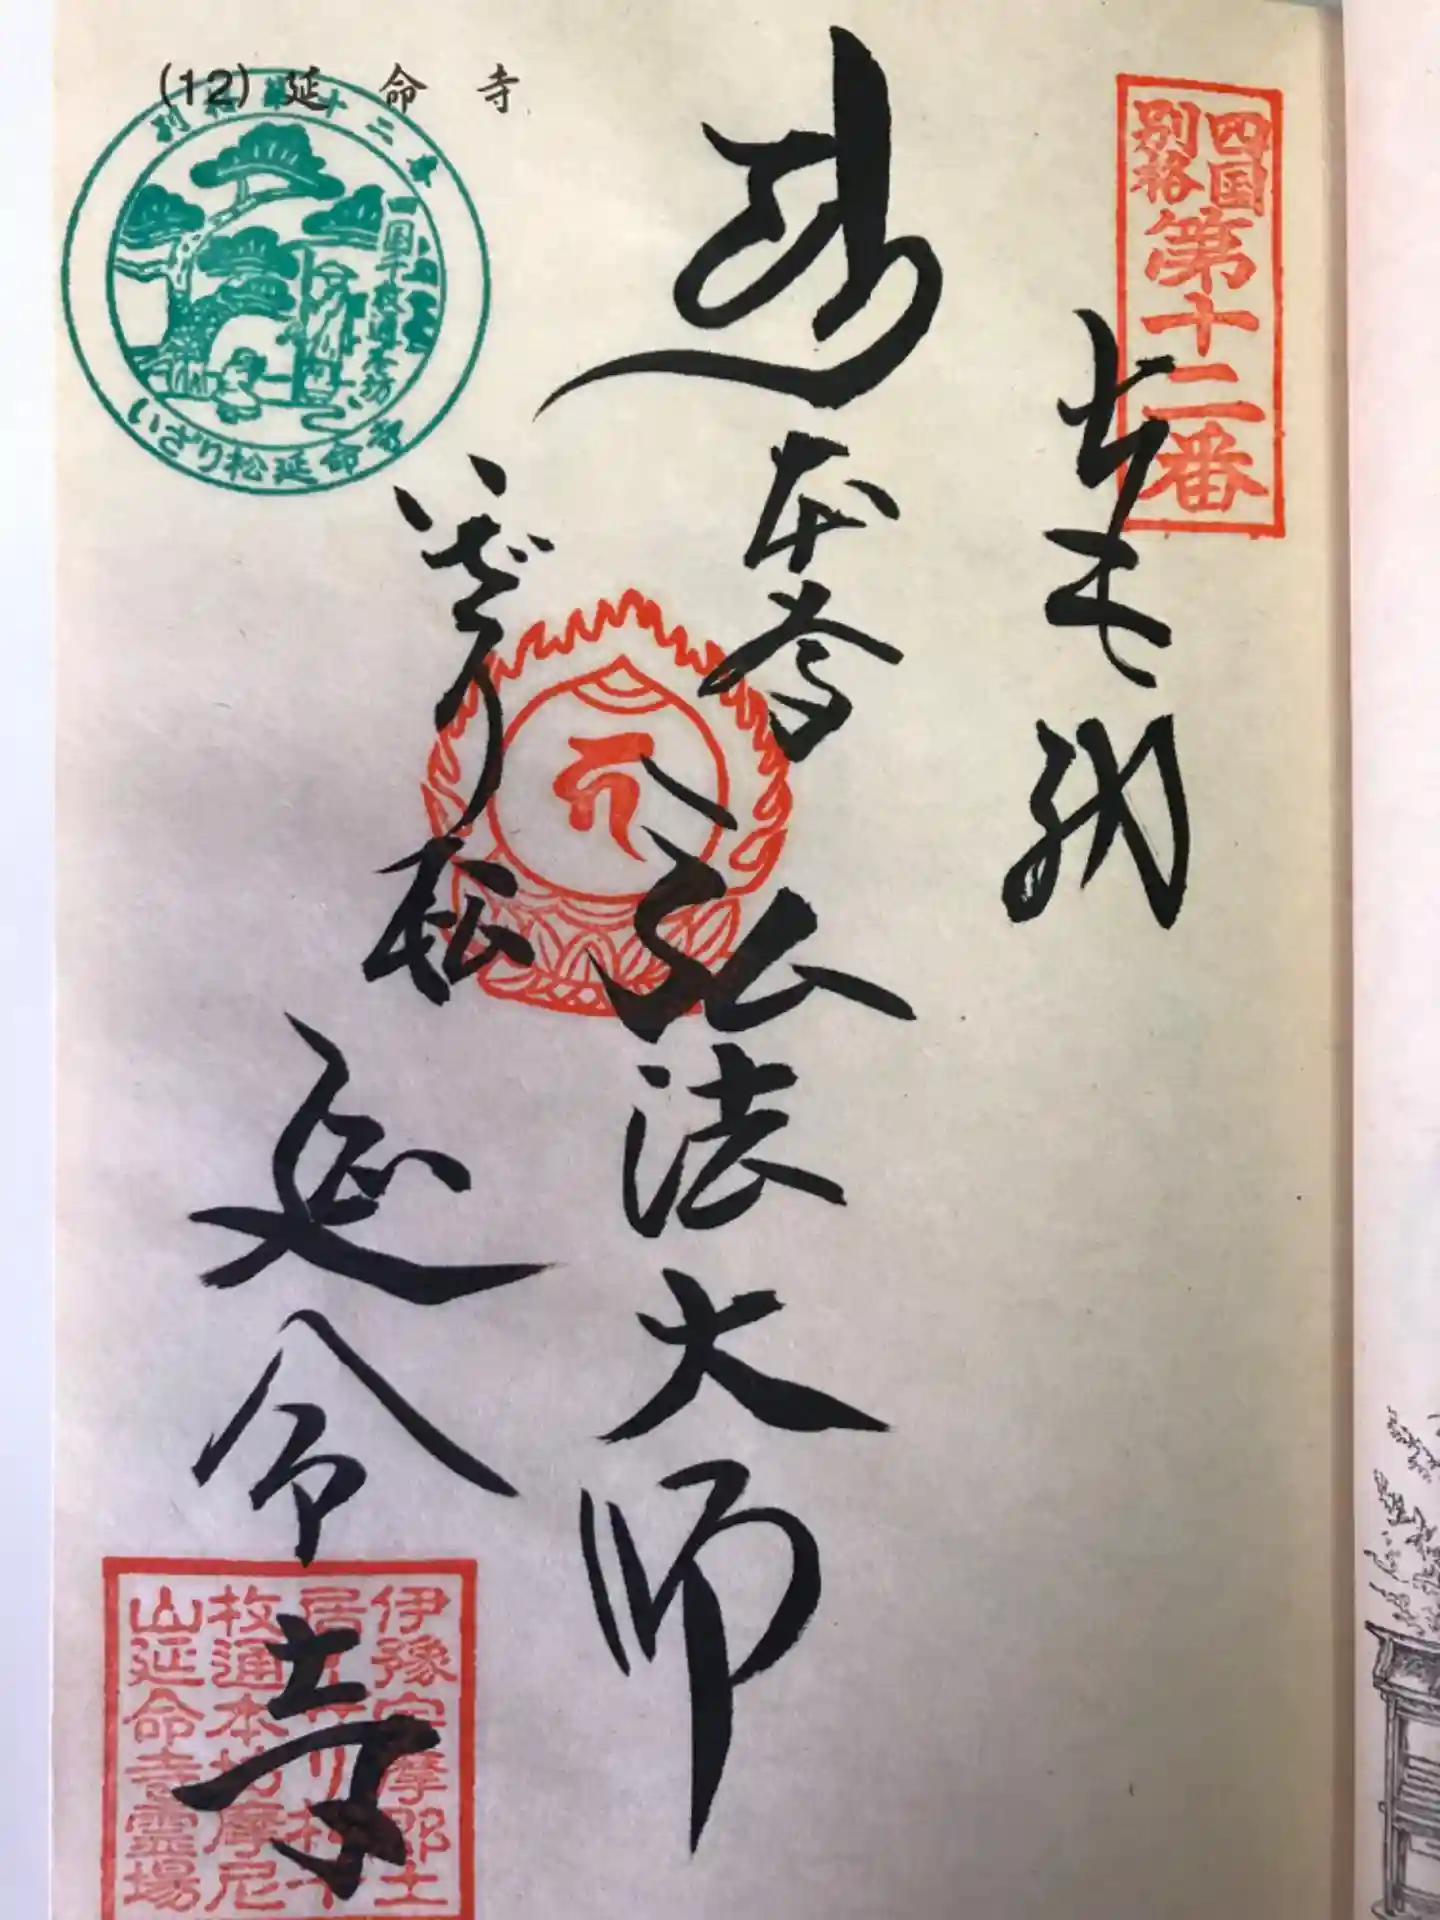 (12) 延命寺
四国
別格
第十二番
奉納
本尊
弘法大師
いざり松
延命寺
別格第十二番
いざり松延命寺
伊豫宇摩郡土
居いざり松千
枚通本坊摩尼
山延命寺霊場